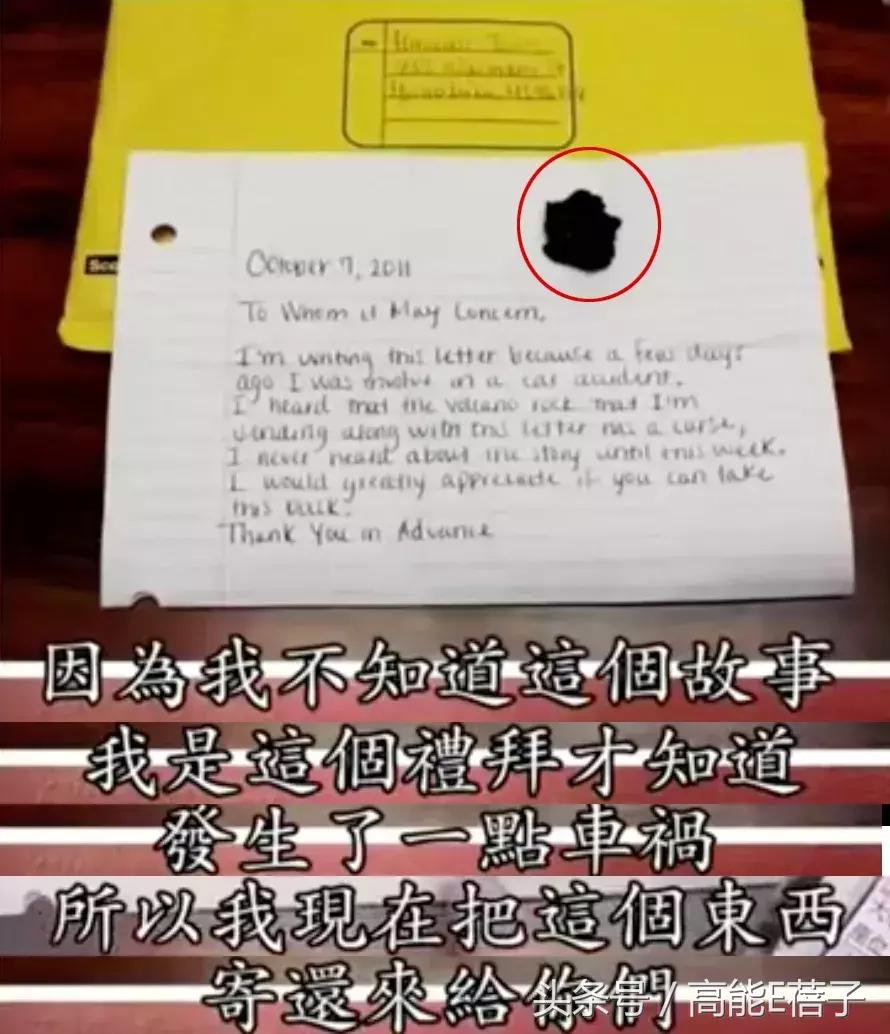 Sco
October 7, 2011
To Whom it May Concern,
I'm writing this letter because a few days
ago I was involve in a car accident.
I heard that the volcano rock that I'm
sending along with this letter has a curse,
I never heard about the story until this week.
I would greatly appreciate if you can take
this back.
Thank You in Advance
因為我不知道這個故事
我是這個禮拜才知道
發生了一點車禍
所以我現在把這個東西
寄還來給你們
头条号 / 高能E蓓子